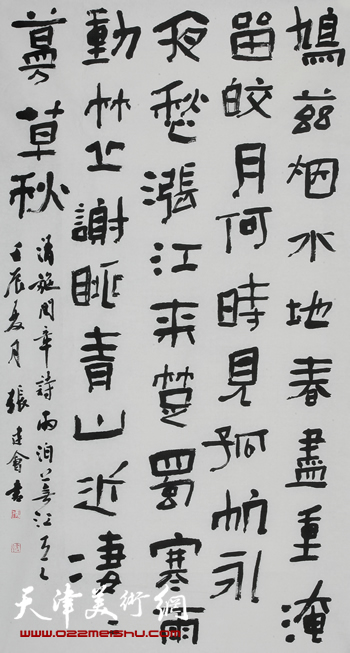 鳩茲烟水地春盡重淹
留皎月何時見孤帆永
夜愁漲江來楚蜀寒雨
動林丘謝眺青山近淒々
蔓草秋
清施閏章詩雨泊蕪江
壬辰夏月張建會書
天津美術網
www.022meishu.com